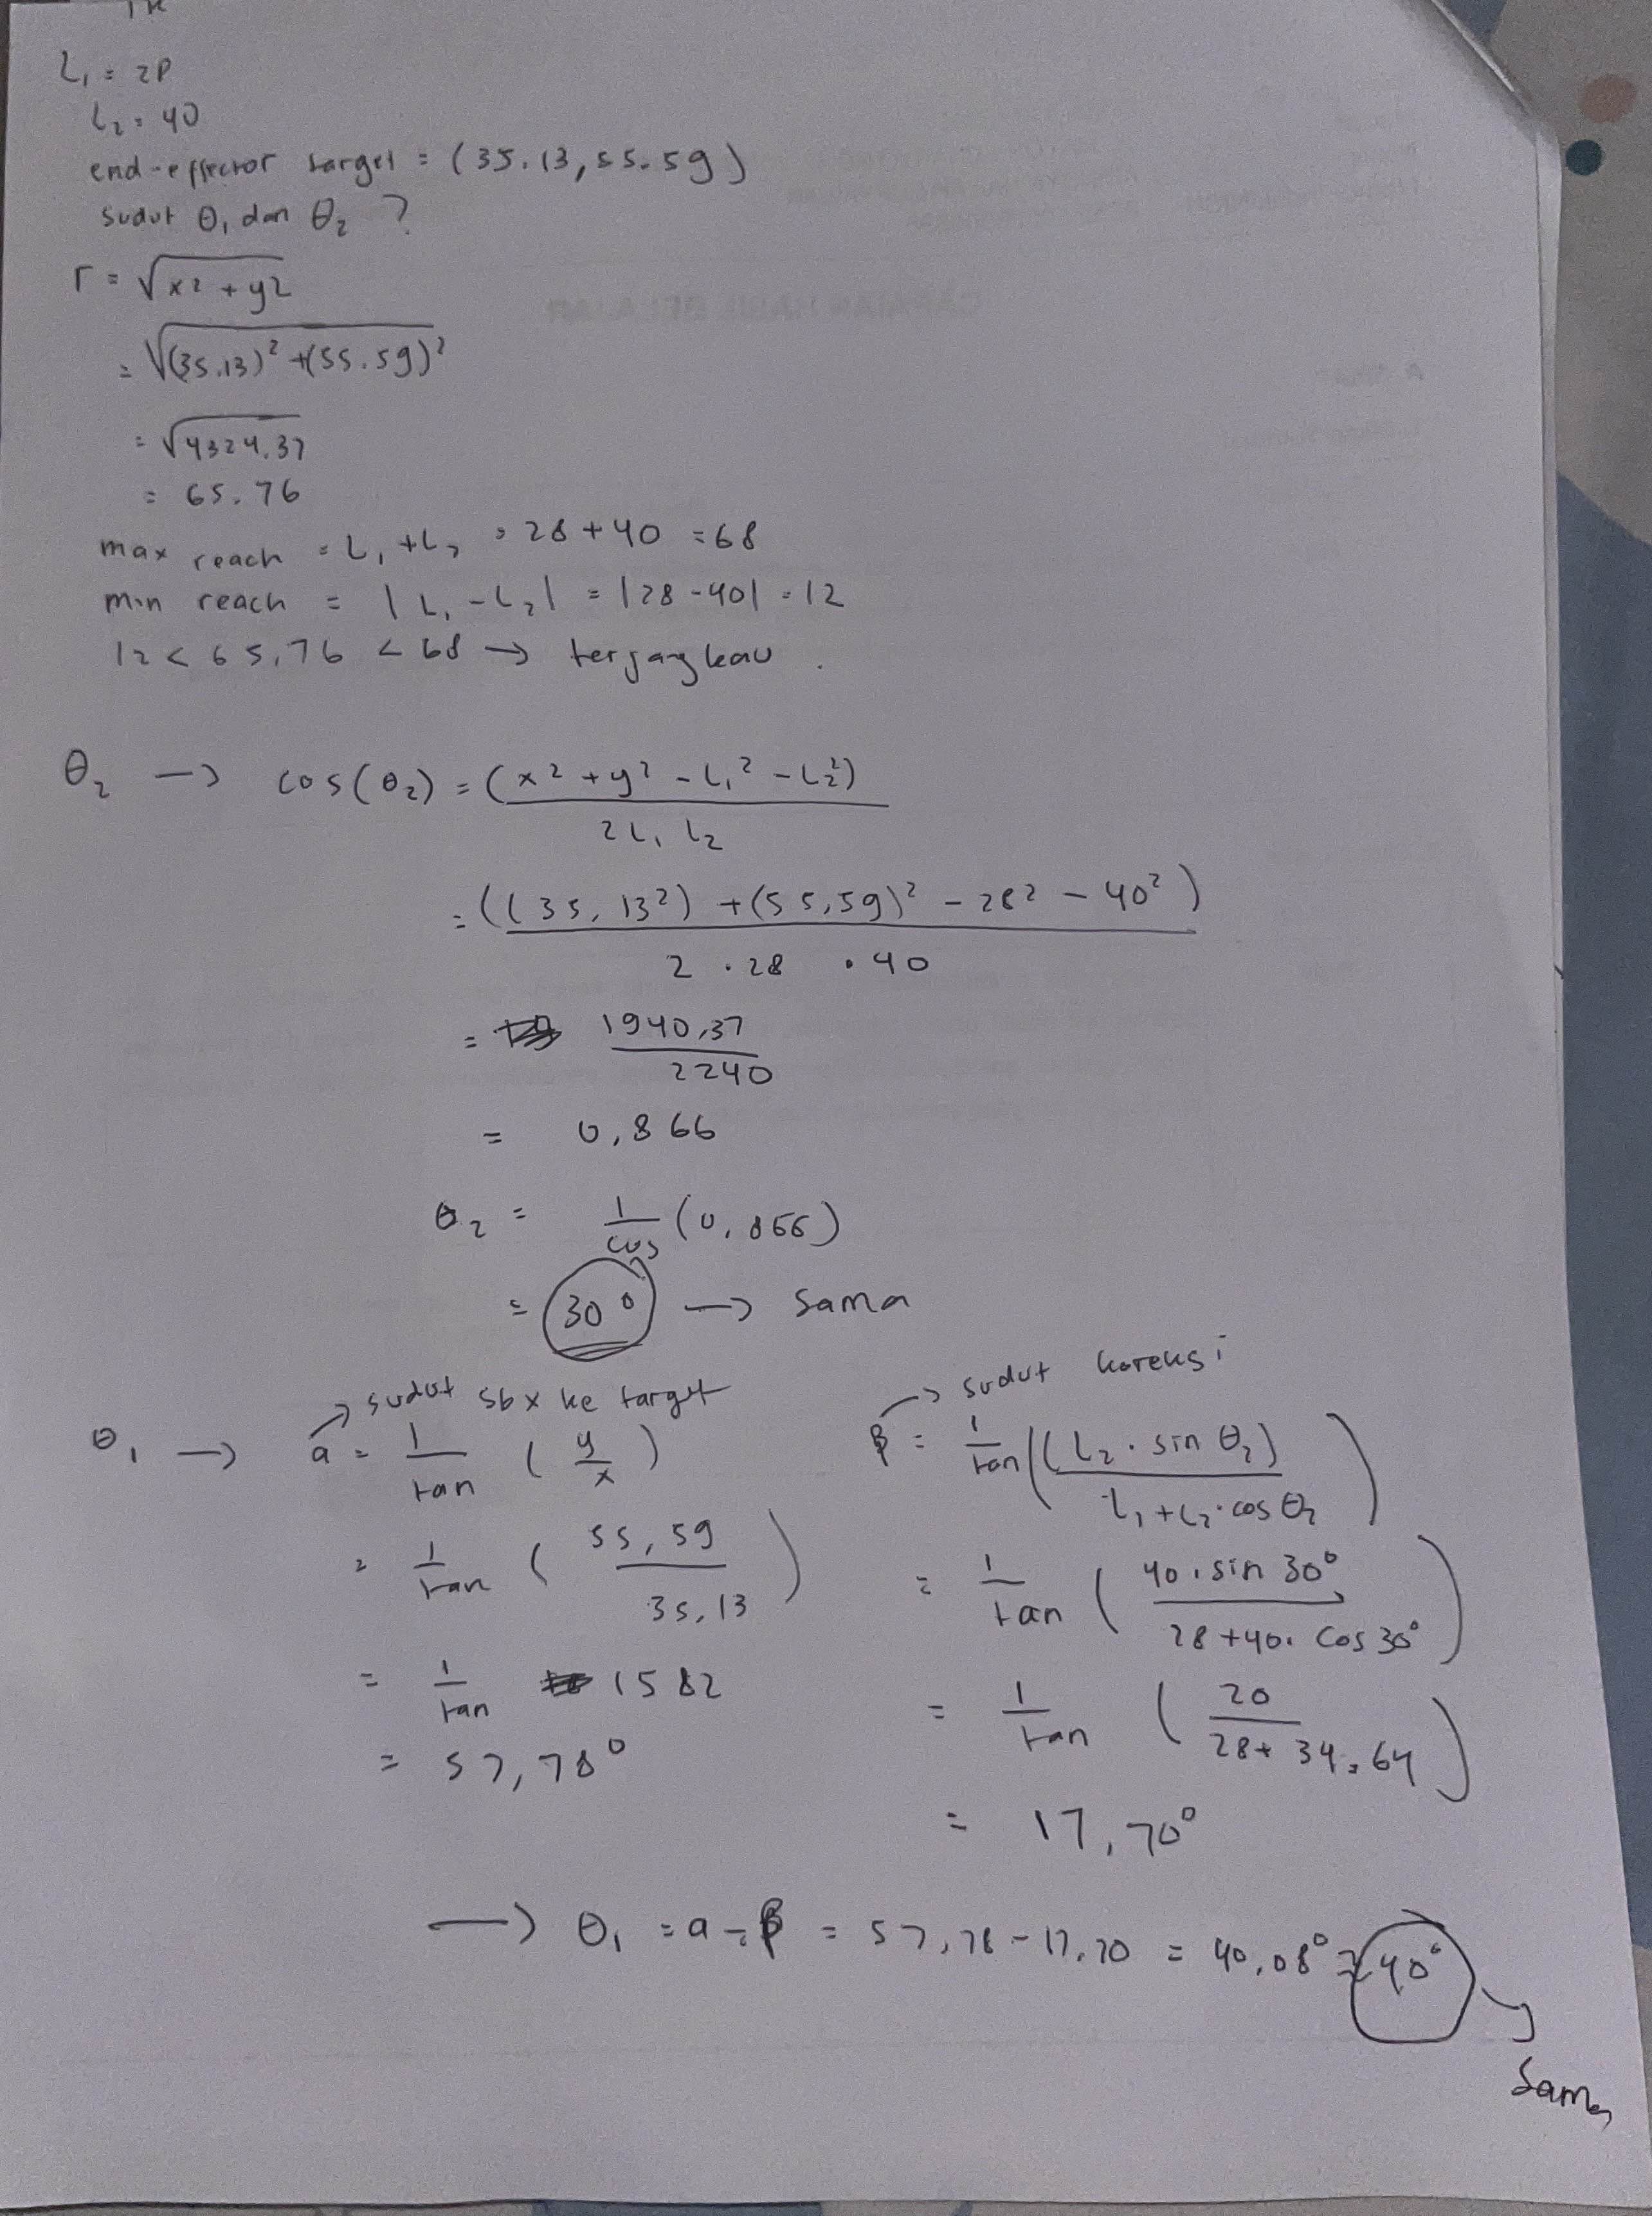 L₁ = 28
L₂ = 40
end-effector target = (35.13, 55.59)
sudut θ₁ dan θ₂ ?
r = √x² + y²
= √(35.13)² + (55.59)²
= √4324.37
= 65.76
max reach = L₁ + L₂ = 28 + 40 = 68
min reach = |L₁ - L₂| = |28 - 40| = 12
12 < 65,76 < 68 → terjangkau.
θ₂ → cos(θ₂) = (x² + y² - L₁² - L₂²)
2 L₁ L₂
= ((35,13²) + (55,59)² - 28² - 40²)
2 . 28 . 40
= 1940,37
2240
= 0,866
θ₂ = 1/cos (0,866)
= 30° → sama
θ₁ → a = 1/tan (y/x)
→ sudut sb x ke target
= 1/tan (55,59 / 35,13)
= 1/tan 1582
= 57,78°
→ sudut koreksi
β = 1/tan ((L₂ . sin θ₂) / L₁ + L₂ . cos θ₂)
= 1/tan (40 . sin 30° / 28 + 40 . cos 30°)
= 1/tan (20 / 28 + 34,64)
= 17,70°
→ θ₁ = a - β = 57,78 - 17,70 = 40,08° ≈ 40°
Sama